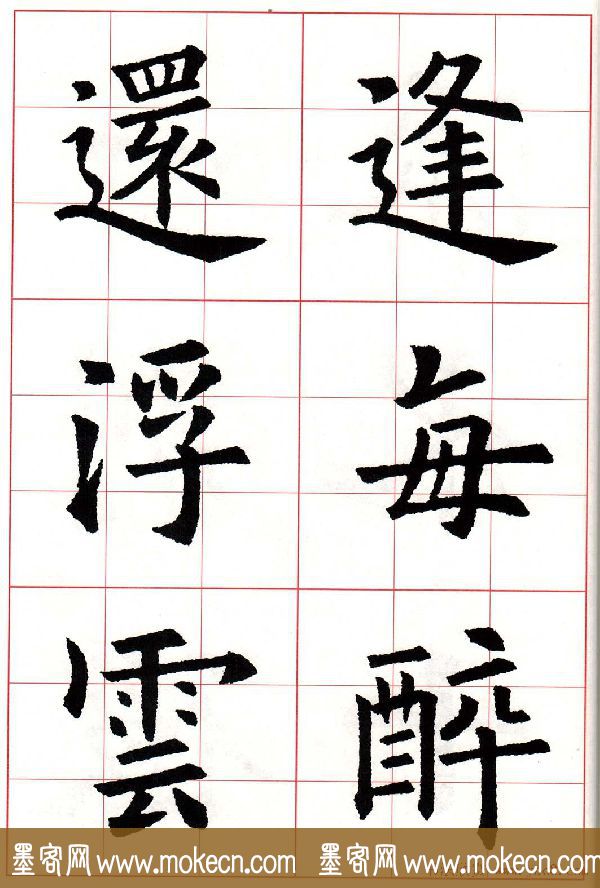 逢每醉
還浮雲
墨客网 www.mokecn.com 墨客网 www.mokecn.com